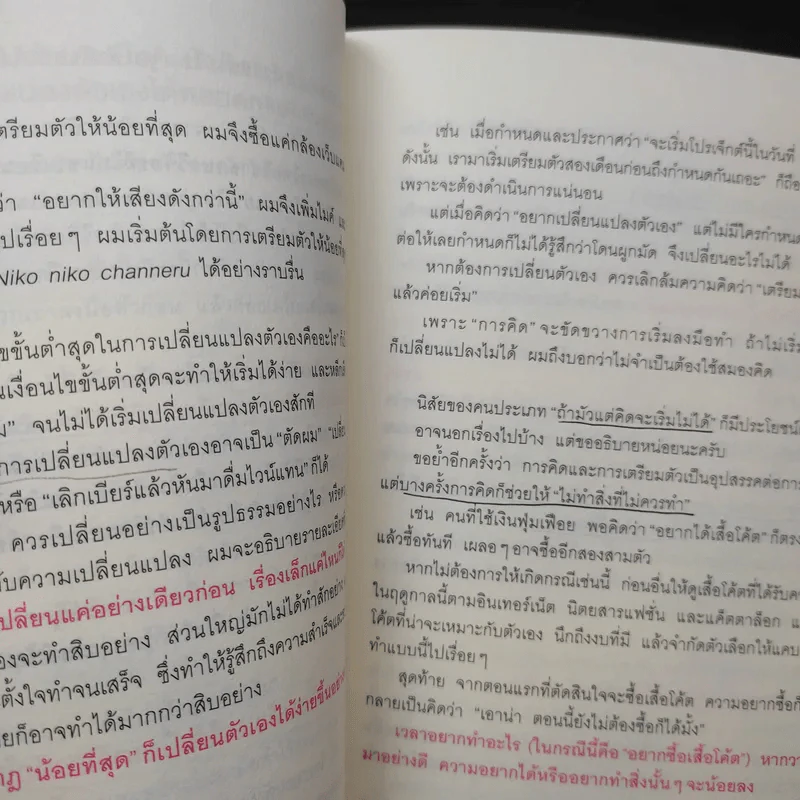 ตรียมตัวให้น้อยที่สุด ผมจึงซื้อแค่กล้องเว็บแคม
ว่า “อยากให้เสียงดังกว่านี้” ผมจึงเพิ่มไมค์
ปเรื่อยๆ ผมเริ่มต้นโดยการเตรียมตัวให้น้อยที่สุด
Niko niko channeru ได้อย่างราบรื่น
ไขขั้นต่ำสุดในการเปลี่ยนแปลงตัวเองคืออะไร”
นเงื่อนไขขั้นต่ำสุดจะทำให้เริ่มได้ง่าย และหลีก
ม” จนไม่ได้เริ่มเปลี่ยนแปลงตัวเองสักที
การเปลี่ยนแปลงตัวเองอาจเป็น “ตัดผม”
หรือ “เลิกเบียร์แล้วหันมาดื่มไวน์แทน” ก็ได้
ควรเปลี่ยนอย่างเป็นรูปธรรมอย่างไร
ับความเปลี่ยนแปลง ผมจะอธิบายรายละเอียด
ปลี่ยนแค่อย่างเดียวก่อน เรื่องเล็กแค่ไหน
องจะทำสิบอย่าง ส่วนใหญ่มักไม่ได้ทำสักอย่าง
ตั้งใจทำจนเสร็จ ซึ่งทำให้รู้สึกถึงความสำเร็จ
ยก็อาจทำได้มากกว่าสิบอย่าง
ฎ “น้อยที่สุด” ก็เปลี่ยนตัวเองได้ง่ายขึ้น
เช่น เมื่อกำหนดและประกาศว่า “จะเริ่มโปรเจ็กต์นี้ในวันที่
ดังนั้น เรามาเริ่มเตรียมตัวสองเดือนก่อนถึงกำหนดกันเถอะ” ก็ถือ
เพราะจะต้องดำเนินการแน่นอน
แต่เมื่อคิดว่า “อยากเปลี่ยนแปลงตัวเอง” แต่ไม่มีใครกำหนด
ต่อให้เลยกำหนดก็ไม่ได้รู้สึกว่าโดนผูกมัด จึงเปลี่ยนอะไรไม่ได้
หากต้องการเปลี่ยนตัวเอง ควรเลิกล้มความคิดว่า “เตรีย
แล้วค่อยเริ่ม”
เพราะ “การคิด” จะขัดขวางการเริ่มลงมือทำ ถ้าไม่เริ่ม
ก็เปลี่ยนแปลงไม่ได้ ผมถึงบอกว่าไม่จำเป็นต้องใช้สมองคิด
นิสัยของคนประเภท “ถ้ามัวแต่คิดจะเริ่มไม่ได้” ก็มีประโยชน์
อาจนอกเรื่องไปบ้าง แต่ขออธิบายหน่อยนะครับ
ขอย้ำอีกครั้งว่า การคิดและการเตรียมตัวเป็นอุปสรรคต่อการ
แต่บางครั้งการคิดก็ช่วยให้ “ไม่ทำสิ่งที่ไม่ควรทำ”
เช่น คนที่ใช้เงินฟุ่มเฟือย พอคิดว่า “อยากได้เสื้อโค้ต” ก็ตรง
แล้วซื้อทันที เผลอๆ อาจซื้ออีกสองสามตัว
หากไม่ต้องการให้เกิดกรณีเช่นนี้ ก่อนอื่นให้ดูเสื้อโค้ตที่ได้รับค
ในฤดูกาลนี้ตามอินเทอร์เน็ต นิตยสารแฟชั่น และแค็ตตาล็อก แ
โค้ตที่น่าจะเหมาะกับตัวเอง นึกถึงงบที่มี แล้วจำกัดตัวเลือกให้แคบ
ทำแบบนี้ไปเรื่อยๆ
สุดท้าย จากตอนแรกที่ตัดสินใจจะซื้อเสื้อโค้ต ความอยากซื้อก็
กลายเป็นคิดว่า “เอาน่า ตอนนี้ยังไม่ต้องซื้อก็ได้มั้ง”
เวลาอยากทำอะไร (ในกรณีนี้คือ “อยากซื้อเสื้อโค้ต”) หากวา
มาอย่างดี ความอยากได้หรืออยากทำสิ่งนั้นๆ จะน้อยลง